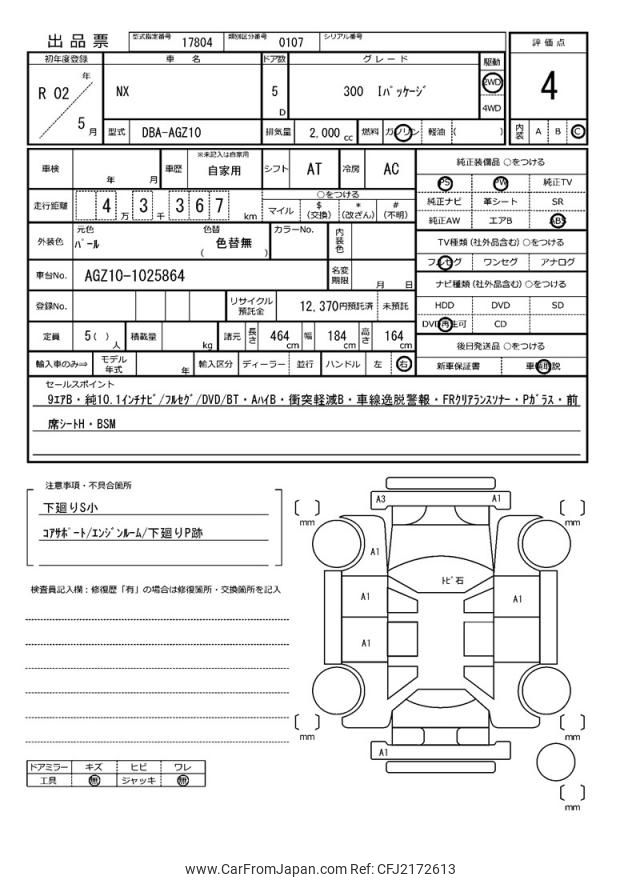 出品票
型式指定番号 17804 類別区分番号 0107 シリアル番号
初年度登録 車名 ドア数 グレード 駆動 評価点
R 02 年 5 月 NX 5 D 300 Iパッケージ 2WD 4WD 4
型式 DBA-AGZ10 排気量 2,000 cc 燃料 ガソリン 軽油 ( ) 内装 A B C
車検 年 月 車歴 ※未記入は自家用 自家用 シフト AT 冷房 AC
走行距離 4 万 3 千 3 6 7 km ○をつける マイル $ (交換) * (改ざん) # (不明)
外装色 元色 パール 色替 色替無 ( ) カラーNo. 内装色
車台No. AGZ10-1025864 名変期限 月 日
登録No. リサイクル預託金 12,370円預託済 未預託
定員 5 ( ) 人 積載量 kg 諸元 長さ 464 cm 幅 184 cm 高さ 164 cm
輸入車のみ⇒ モデル年式 年 輸入区分 ディーラー 並行 ハンドル 左 右
純正装備品 ○をつける
PS PW 純正TV
純正ナビ 革シート SR
純正AW エアB ABS
TV種類 (社外品含む) ○をつける
フルセグ ワンセグ アナログ
ナビ種類 (社外品含む) ○をつける
HDD DVD SD
DVD再生可 CD
後日発送品 ○をつける
新車保証書 車輌取説
セールスポイント
9エアB・純10.1インチナビ/フルセグ/DVD/BT・AハイB・衝突軽減B・車線逸脱警報・FRクリアランスソナー・Pガラス・前
席シートH・BSM
注意事項・不具合箇所
下廻りS小
コアサポート/エンジンルーム/下廻りP跡
検査員記入欄:修復歴「有」の場合は修復箇所・交換箇所を記入
A3 A1
mm mm
A1
トビ石
A1 A1
A1
mm mm
A1
mm
ドアミラー キズ ヒビ ワレ
工具 無 ジャッキ 無
www.CarFromJapan.com Ref: CFJ2172613